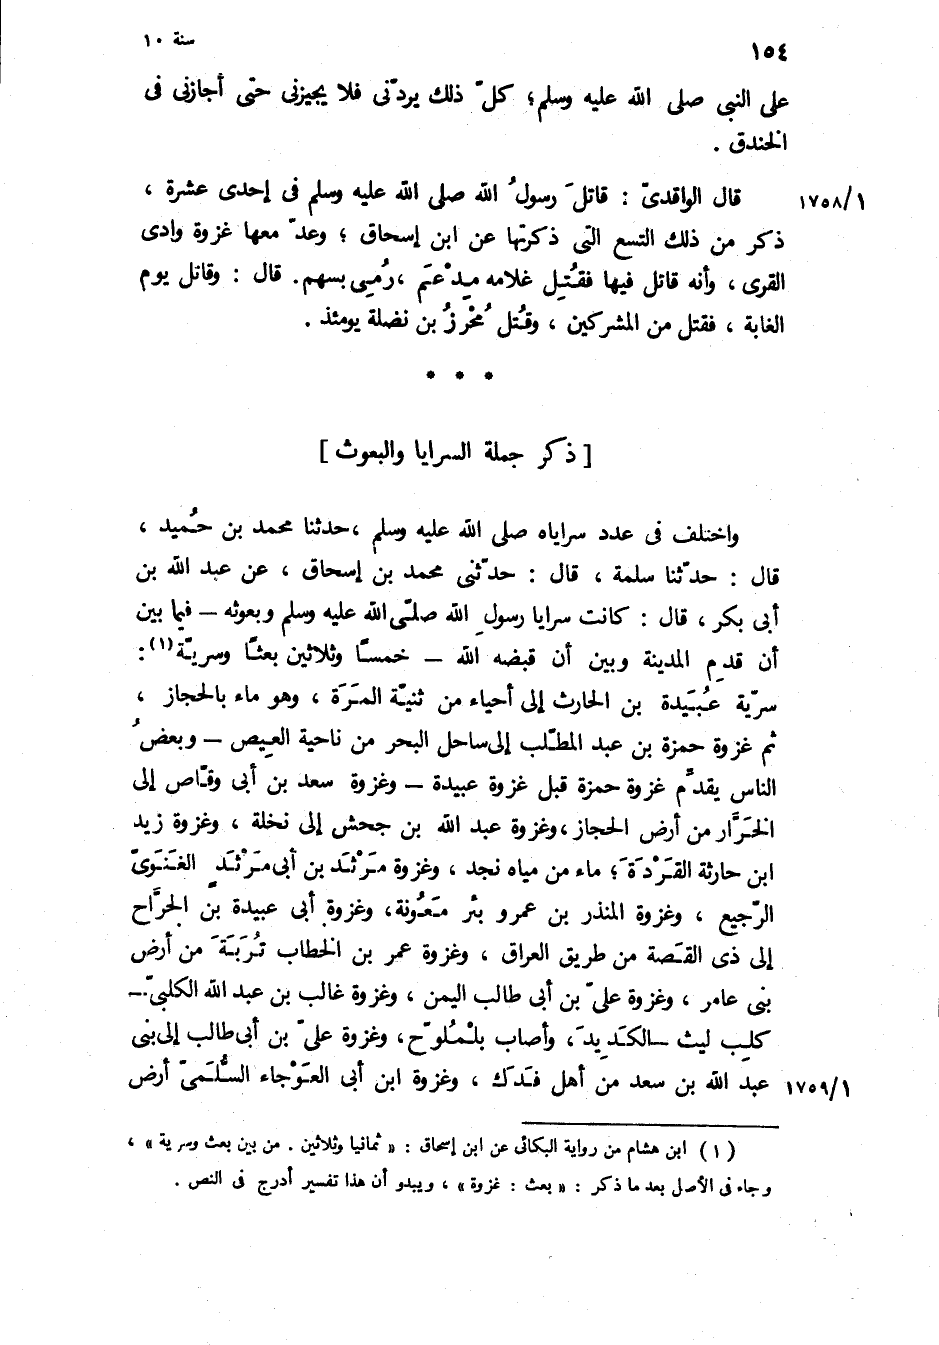 ١٥٤
سنة ١٠
على النبى صلى الله عليه وسلم؛ كلّ ذلك يردّنى فلا يجيزنى حتى أجازنى فى
الخندق .
١٧٥٨/١ قال الواقدىّ : قاتلَ رسولُ الله صلى الله عليه وسلم فى إحدى عشرة ،
ذكر من ذلك التسع التى ذكرتها عن ابن إسحاق ؛ وعدّ معها غزوة وادى
القرى ، وأنه قاتل فيها فقُتِل غلامه مِدْعَم ، رُمِى بسهم. قال : وقاتل يوم
الغابة ، فقتل من المشركين ، وقُتل مُحْرزُ بن نضلة يومئذ .
* * *
[ ذكر جملة السرايا والبعوث ]
واختلف فى عدد سراياه صلى الله عليه وسلم ،حدثنا محمد بن حُميد ،
قال : حدّثنا سلمة ، قال : حدّثنى محمد بن إسحاق ، عن عبد الله بن
أبى بكر ، قال : كانت سرايا رسولِ الله صلّى الله عليه وسلم وبعوثه – فيما بين
أن قدِم المدينة وبين أن قبضه الله – خمسًا وثلاثين بعثًا وسريّة(١):
سرّية عُبَيدة بن الحارث إلى أحياء من ثنيّة المَرَة ، وهو ماء بالحجاز ،
ثم غزوة حمزة بن عبد المطّلب إلى ساحل البحر من ناحية العِيص – وبعضُ
الناس يقدّم غزوة حمزة قبل غزوة عبيدة – وغزوة سعد بن أبى وقّاص إلى
الخَرَّار من أرض الحجاز ،وغزوة عبد الله بن جحش إلى نخلة ، وغزوة زيد
ابن حارثة القَرْدَةَ ؛ ماء من مياه نجد ، وغزوة مَرْثَد بن أبى مَرْثَدٍ الغَنَوىّ
الرّجيع ، وغزوة المنذر بن عمرو بئر مَعُونة، وغزوة أبى عبيدة بن الجرَّاح
إلى ذى القَصة من طريق العراق ، وغزوة عمر بن الخطاب تُرَبَةَ من أرض
بنى عامر ، وغزوة علىّ بن أبى طالب اليمن ، وغزوة غالب بن عبد الله الكلبىّ –
كلِب ليث – الكَدِيدَ، وأصاب بلْمُلوّح ، وغزوة علىّ بن أبى طالب إلى بنى
١٧٥٩/١ عبد الله بن سعد من أهل فَدَك ، وغزوة ابن أبى العَوْجاء السُّلَمىّ أرض
(١) ابن هشام من رواية البكائى عن ابن إسحاق : « ثمانيا وثلاثين . من بين بعث وسرية » ،
وجاء فى الأصل بعد ما ذكر : « بعث : غزوة » ، ويبدو أن هذا تفسير أدرج فى النص .